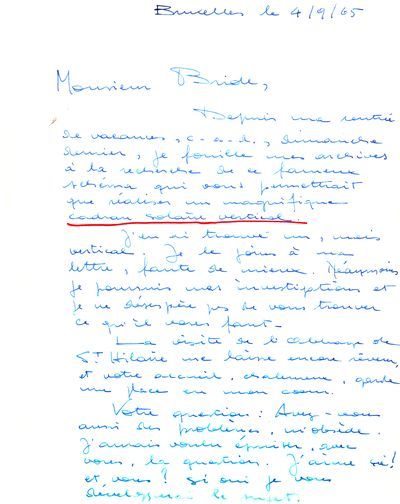 Bruxelles le 4/9/65
Monsieur Bride,
Depuis ma rentrée
de vacances, c.a.d., dimanche
dernier, je fouille mes archives
à la recherche de ce fameux
schéma qui vous permettrait
que réaliser un magnifique
cadran solaire vertical.
J'en ai trouvé un, mais
vertical. Je le joins à ma
lettre, faute de mieux. Néanmoins
je poursuis mes investigations et
je ne désespère pas de vous trouver
ce qu'il vous faut.
La visite de l'abbaye de
St Hilaire me laisse encore rêveur,
et votre accueil, chaleureux, garde
une place en mon coeur.
Votre question : Avez-vous
aussi des problèmes, m'obsède.
J'aurais voulu épuiser, avec
vous, la question. J'aime
et vous ? Si oui je vous
développerai le sujet.